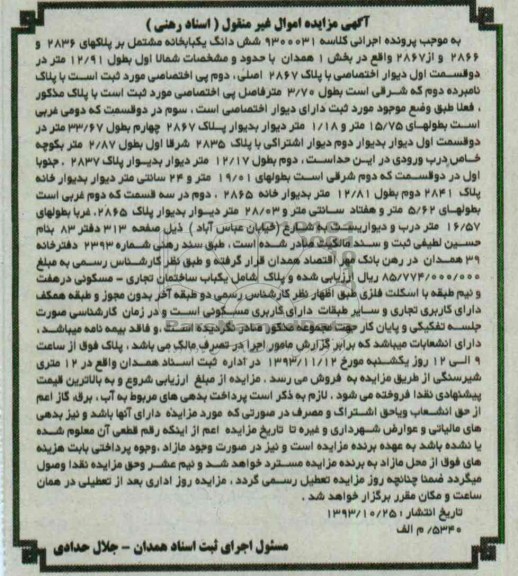 آگهی مزایده اموال غیر منقول ( اسناد رهنی )
به موجب پرونده اجرائی کلاسه ۹۳۰۰۰۳۱ شش دانگ یکبابخانه مشتمل بر پلاکهای ۲۸۳۶ و
۲۸۶۶ و از۲۸۶۷ واقع در بخش ۱ همدان با حدود و مشخصات شمالا اول بطول ۱۲/۹۱ متر در
دوقسمت اول دیوار اختصاصی با پلاک ۲۸۶۷ اصلی ، دوم پی اختصاصی مورد ثبت است با پلاک
نامبرده دوم که شرقی است بطول ۳/۷۰ مترفاصل پی اختصاصی مورد ثبت است با پلاک مذکور
، فعلا طبق وضع موجود مورد ثبت دارای دیوار اختصاصی است ، سوم در دوقسمت که دومی غربی
است بطولهای ۱۵/۷۵ متر و ۱/۱۸ متر دیوار بدیوار پلاک ۲۸۶۷ چهارم بطول ۳۳/۶۷ متر در
دوقسمت اول دیوار بدیوار دوم دیوار اشتراکی با پلاک ۲۸۳۵ شرقا اول بطول ۲/۸۷ متر بکوچه
خاص درب ورودی در این حداست ، دوم بطول ۱۲/۱۷ متر دیوار بدیوار پلاک ۲۸۳۷ . جنوبا
اول در دوقسمت که دوم شرقی است بطولهای ۱۹/۰۱ متر و ۲۴ سانتی متر دیوار بدیوار خانه
پلاک ۲۸۴۱ دوم بطول ۱۲/۸۱ متر بدیوار خانه ۲۸۶۵ . دوم در سه قسمت که دوم غربی است
بطولهای ۵/۶۲ متر و هفتاد سانتی متر و ۲۸/۰۳ متر دیوار بدیوار پلاک ۲۸۶۵. غربا بطولهای
۱۶/۵۷ متر درب و دیواریست به شارع (خیابان عباس آباد ) ذیل صفحه ۳۱۳ دفتر ۸۳ بنام
حسین لطیفی ثبت و سند مالکیت صادر شده است ، طبق سند رهنی شماره ۲۳۹۳ دفترخانه
۳۹ همدان در رهن بانک مهر اقتصاد همدان قرار گرفته و طبق نظر کارشناس رسمی به مبلغ
۸۵/۷۷۴/۰۰۰/۰۰۰ ریال ارزیابی شده و پلاک شامل یکباب ساختمان تجاری – مسکونی در هفت
و نیم طبقه با اسکلت فلزی طبق اظهار نظر کارشناس رسمی دو طبقه آخر بدون مجوز و طبقه همکف
دارای کاربری تجاری و سایر طبقات دارای کاربری مسکونی است و در زمان کارشناسی صورت
جلسه تفکیکی و پایان کار جهت مجموعه مذکور صادر نگردیده است ، و فاقد بیمه نامه میباشد ،
دارای انشعابات میباشد که برابر گزارش مامور اجرا در تصرف مالک می باشد ، پلاک فوق از ساعت
۹ الی ۱۲ روز یکشنبه مورخ ۱۳۹۳/۱۱/۱۲ در اداره ثبت اسناد همدان واقع در ۱۲ متری
شیرسنگی از طریق مزایده به فروش می رسد . مزایده از مبلغ ارزیابی شروع و به بالاترین قیمت
پیشنهادی نقدا فروخته می شود . لازم به ذکر است پرداخت بدهی های مربوط به آب، برق، گاز اعم
از حق انشعاب ویاحق اشتراک و مصرف در صورتی که مورد مزایده دارای آنها باشد و نیز بدهی
های مالیاتی و عوارض شهرداری و غیره تا تاریخ مزایده اعم از اینکه رقم قطعی آن معلوم شده
یا نشده باشد به عهده برنده مزایده است و نیز در صورت وجود مازاد ،وجوه پرداختی بابت هزینه
های فوق از محل مازاد به برنده مزایده مسترد خواهد شد و نیم عشر وحق مزایده نقدا وصول
میگردد ضمنا چنانچه روز مزایده تعطیل رسمی گردد ، مزایده روز اداری بعد از تعطیلی در همان
ساعت و مکان مقرر برگزار خواهد شد .
تاریخ انتشار : ۱۳۹۳/۱۰/۲۵
۵۳۴۰/ م الف
مسئول اجرای ثبت اسناد همدان – جلال حدادی